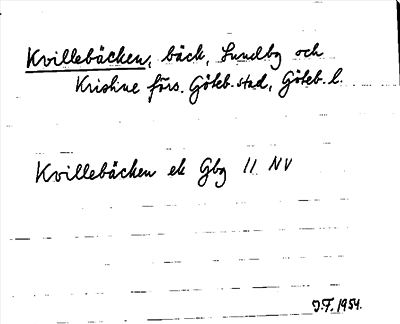 Kvillebäcken, bäck, Lundby och
Kristine förs. Göteb. stad, Göteb. l.
Kvillebäcken ek Gbg 11 NV
J.F. 1954.